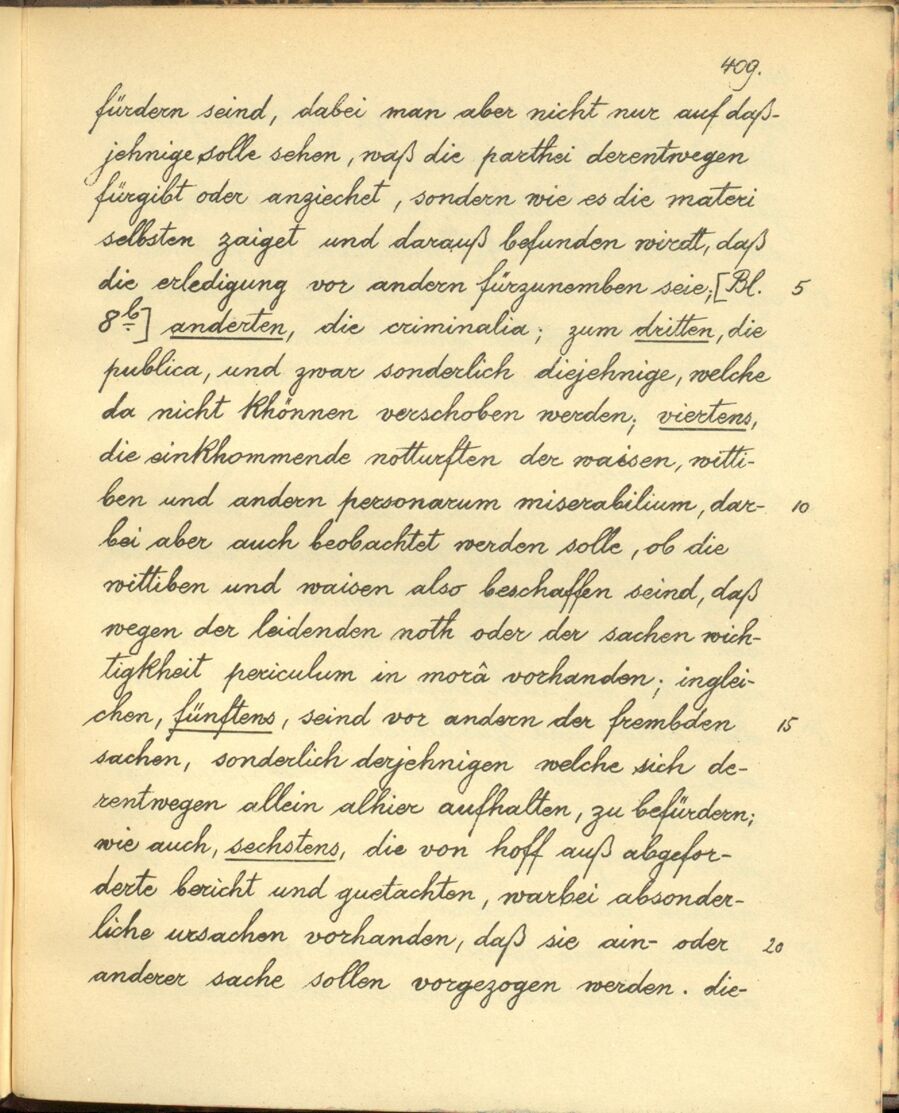 409.
fürdern seind, dabei man aber nicht nur auf daß-
jehnige solle sehen, waß die parthei derentwegen
fürgibt oder anziechet, sondern wie es die materi
selbsten zaiget und darauß befunden wirdt, daß
die erledigung vor andern fürzunemben seie; [Bl. 5
8b] anderten, die criminalia; zum dritten, die
publica, und zwar sonderlich diejehnige, welche
da nicht khönnen verschoben werden; viertens,
die einkhommende notturften der waisen, witti-
ben und andern personarum miserabilium, dar- 10
bei aber auch beobachtet werden solle, ob die
wittiben und waisen also beschaffen seind, daß
wegen der leidenden noth oder der sachen wich-
tigkheit periculum in morâ vorhanden; inglei-
chen, fünftens, seind vor andern der frembden 15
sachen, sonderlich derjehnigen welche sich de-
rentwegen allein alhier aufhalten, zu befürdern;
wie auch, sechstens, die von hoff auß abgefor-
derte bericht und guetachten, warbei absonder-
liche ursachen vorhanden, daß sie ain- oder 20
anderer sache sollen vorgezogen werden. die-